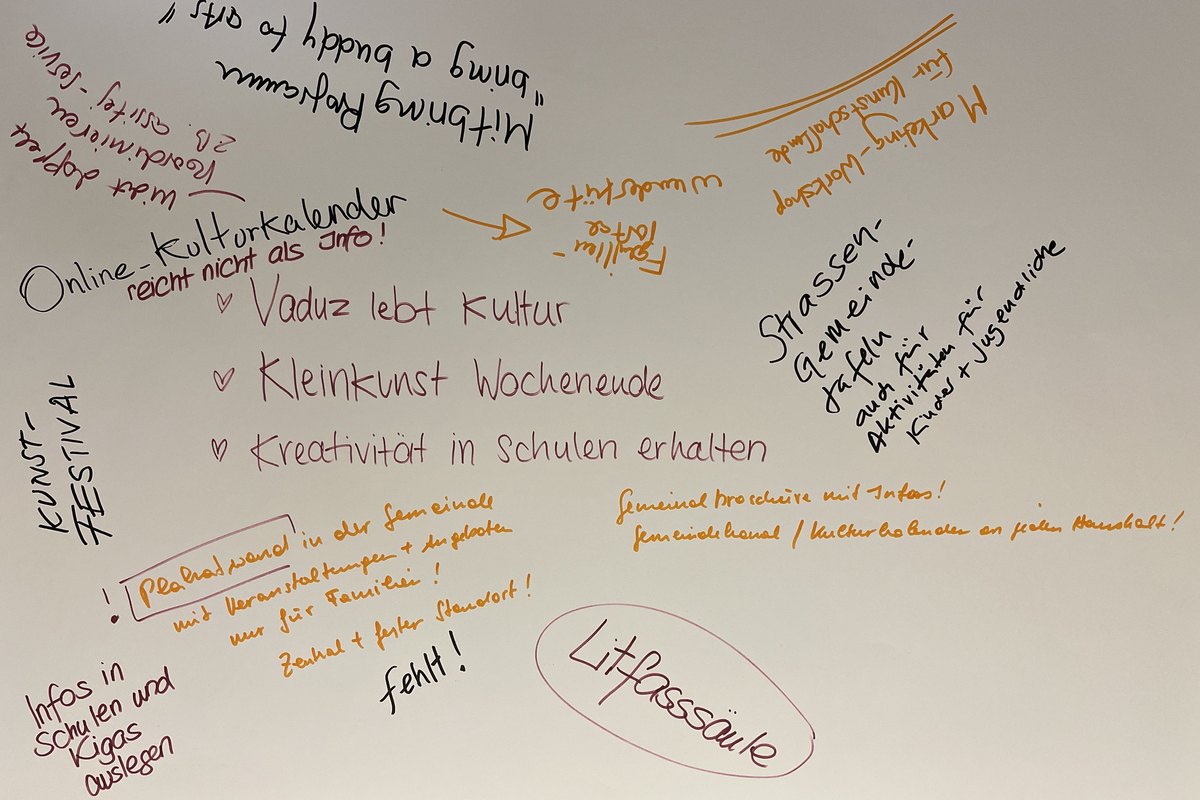 Mitbring Programm
"bring a buddy to arts"
nicht doppelt
koordinieren
z.B. assitej-service
Marketing-Workshop
für Kunstschaffende
Online-Kulturkalender
reicht nicht als Info!
Familien-
wundertüte
Strassen-
Gemeinde-
tafeln
auch für
Aktivitäten für
Kinder + Jugendliche
♡ Vaduz lebt Kultur
♡ Kleinkunst Wochenende
♡ Kreativität in Schulen erhalten
KUNST-
FESTIVAL
! Plakatwand in der Gemeinde
mit Veranstaltungen + Angeboten
nur für Familien!
Zentral + fester Standort!
fehlt!
Gemeindebroschüre mit Infos!
Gemeindekanal / Kulturkalender an jeden Haushalt!
Infos in
Schulen und
Kigas
auslegen
Litfasssäule